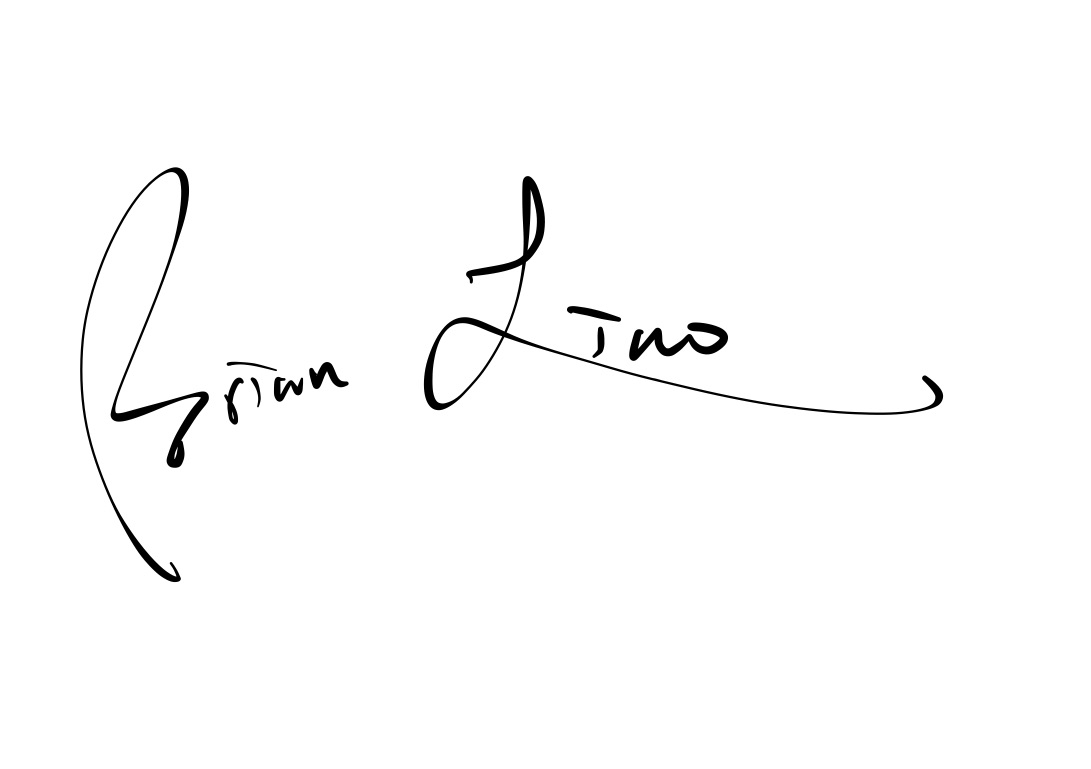 Brian Lino